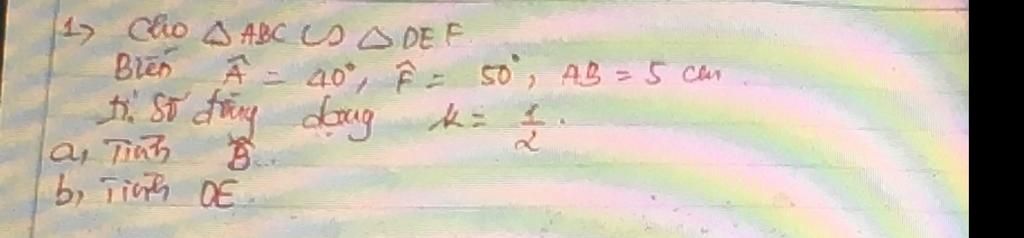 1, Cho △ ABC ∽ △ DEF
Biết Â = 40°, F̂ = 50°, AB = 5 cm
tỉ số đồng dạng k = 1/2.
a, Tính B̂
b, Tính DE